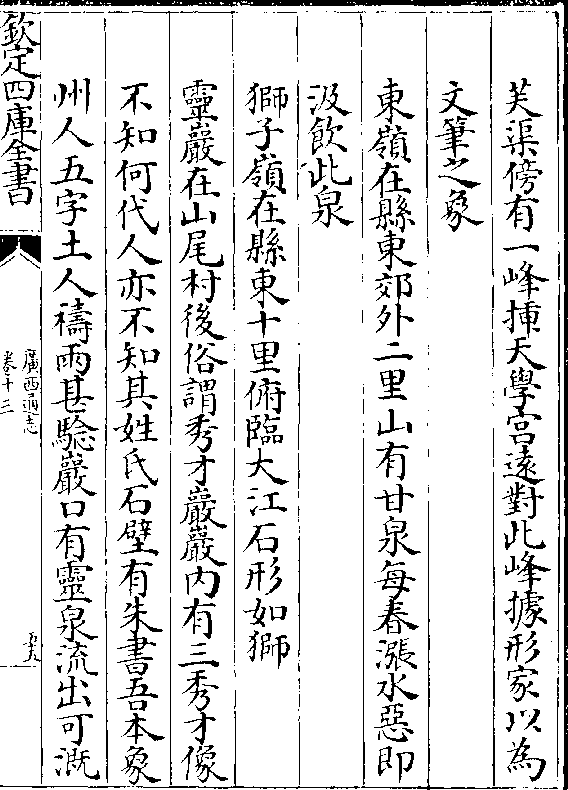 芙渠傍有一峰揷天學宮遠對此峰據形家以為
文筆之象
東嶺在縣東郊外二里山有甘泉每春漲水惡即
汲飲此泉
獅子嶺在縣東十里俯臨大江石形如獅
靈巖在山尾村後俗謂秀才巖巖内有三秀才像
不知何代人亦不知其姓氏石壁有朱書吾本象
州人五字土人禱雨甚驗巖口有靈泉流出可溉
欽定四庫全書
廣西通志
卷十三